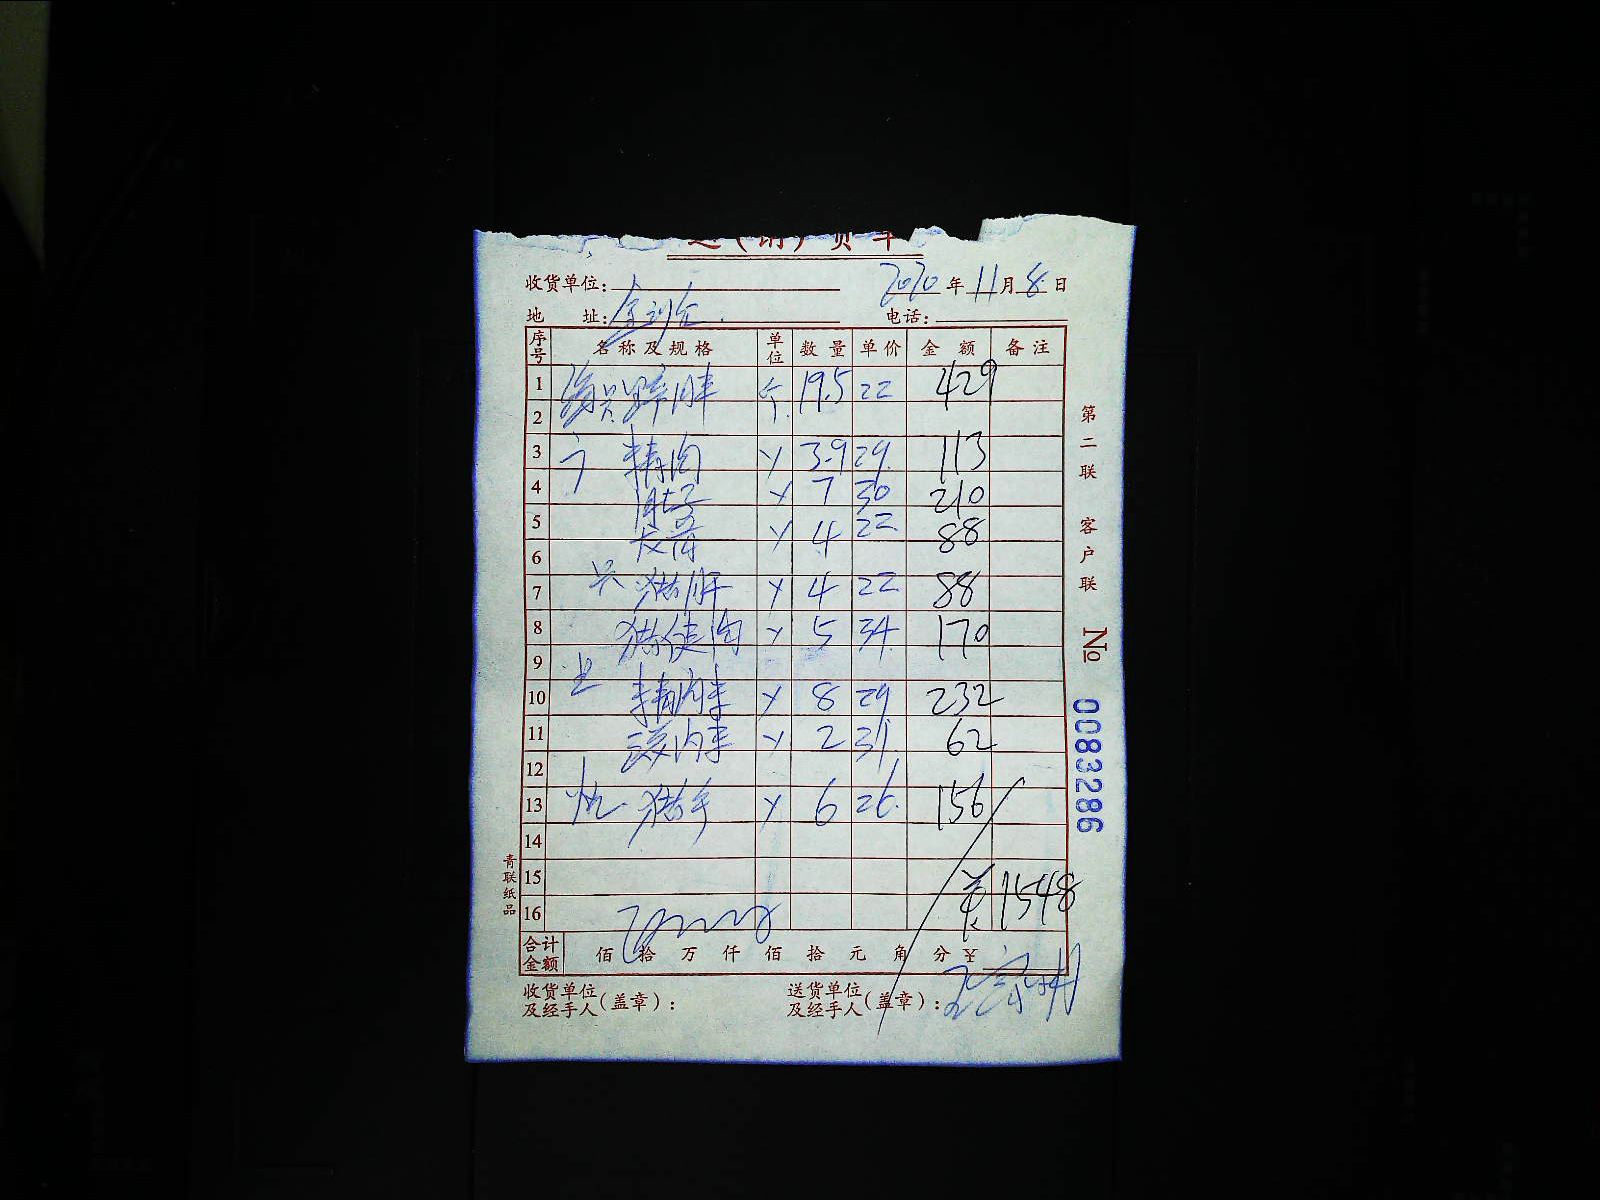 送(销)货单
收货单位: 2020年11月8日
地 址: 电话:
序号 名称及规格 单位 数量 单价 金额 备注
1 蹄胖 斤 19.5 22 429
2
3 精肉 Y 3.9 29 113
4 肚子 Y 7 30 210
5 大肠 Y 4 22 88
6
7 猪肝 Y 4 22 88
8 猪健肉 Y 5 34 170
9
10 精肉丰 Y 8 29 232
11 Y 2 31 62
12
13 猪手 Y 6 26 156
14
15 1548
16
合计金额 佰 拾 万 仟 佰 拾 元 角 分 ¥
收货单位及经手人(盖章): 送货单位及经手人(盖章):
第二联 客户联
№ 0083286
青联纸品